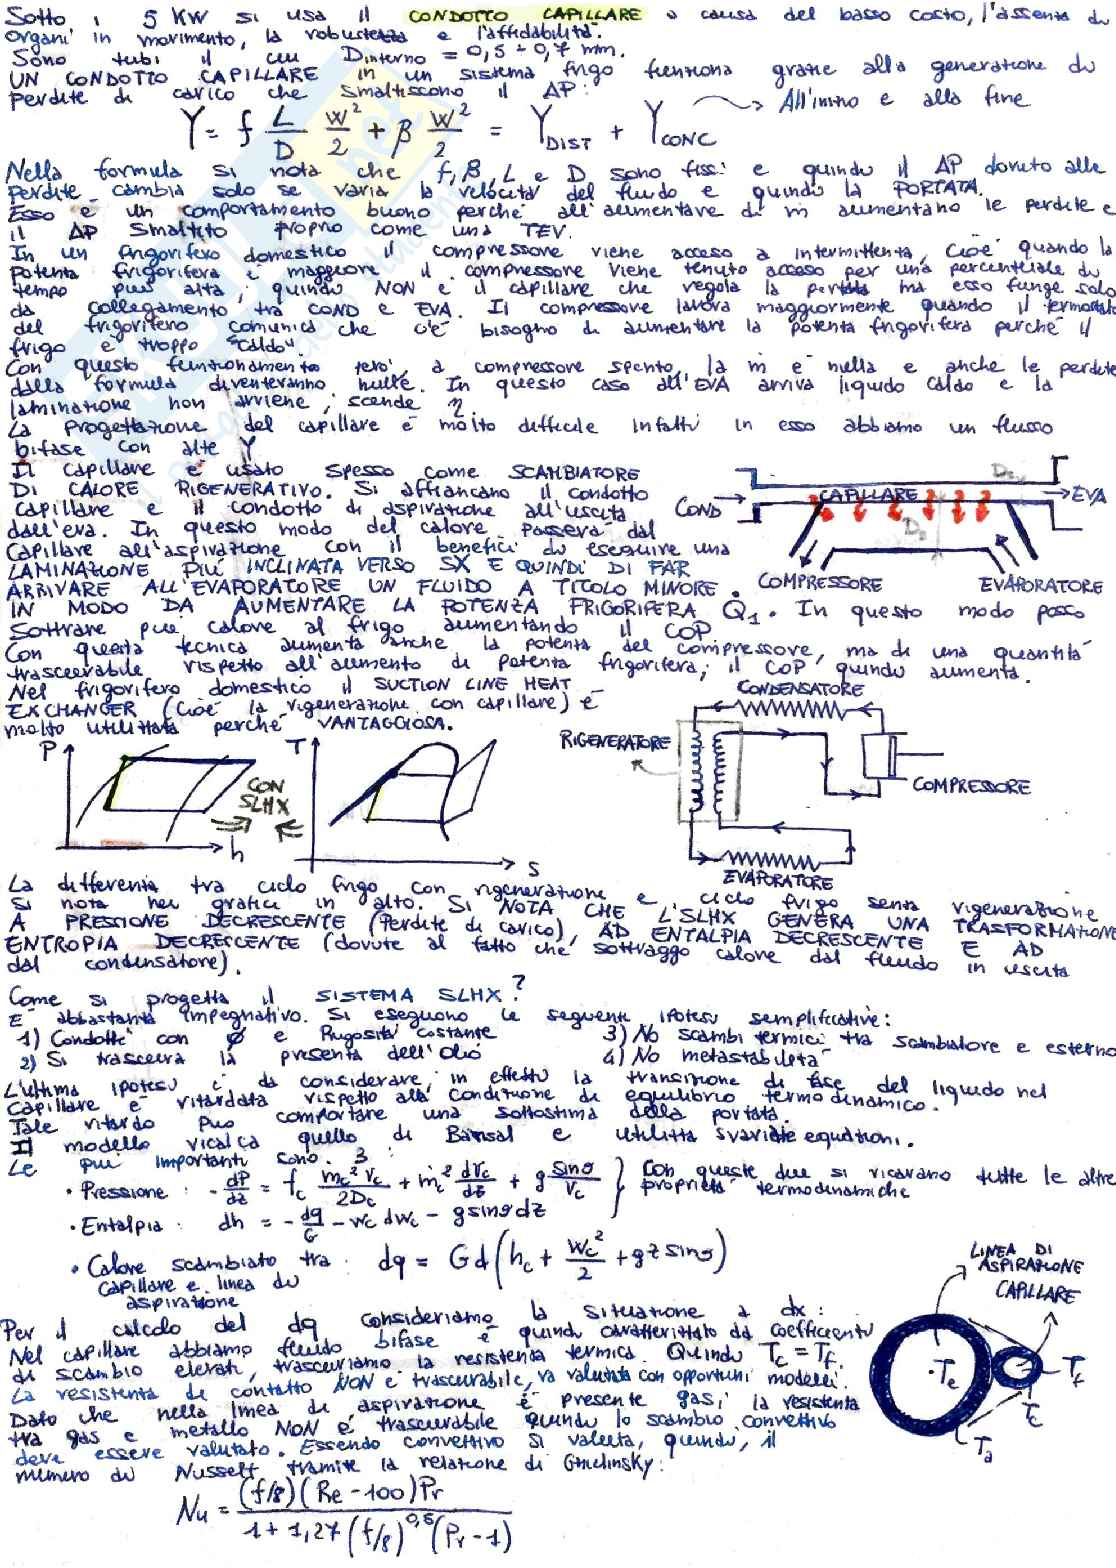 Sotto i 5 KW si usa il CONDOTTO CAPILLARE a causa del basso costo, l'assenza di
organi in movimento, la robustezza e l'affidabilità.
Sono tubi il cui Dinterno = 0,5 ÷ 0,7 mm.
UN CONDOTTO CAPILLARE in un sistema frigo funziona grazie alla generazione di
perdite di carico che smaltiscono il ΔP:
Y = f L/D w²/2 + β w²/2 = Y_DIST + Y_CONC → All'inizio e alla fine
Nella formula si nota che f, β, L e D sono fissi e quindi il ΔP dovuto alle
perdite cambia solo se varia la velocità del fluido e quindi la PORTATA.
Esso è un comportamento buono perché all'aumentare di ṁ aumentano le perdite e
il ΔP smaltito proprio come una TEV.
In un frigorifero domestico il compressore viene acceso a intermittenza, cioè quando la
potenza frigorifera è maggiore il compressore viene tenuto acceso per una percentuale di
tempo più alta, quindi NON è il capillare che regola la portata ma esso funge solo
da collegamento tra COND e EVA. Il compressore lavora maggiormente quando il termostato
del frigorifero comunica che c'è bisogno di aumentare la potenza frigorifera perché il
frigo è troppo "caldo".
Con questo funzionamento però, a compressore spento, la ṁ è nulla e anche le perdite
dalla formula diventeranno nulle. In questo caso all'EVA arriva liquido caldo e la
laminazione non avviene, scende η.
La progettazione del capillare è molto difficile infatti in esso abbiamo un flusso
bifase con alte Y
Il capillare è usato spesso come SCAMBIATORE
DI CALORE RIGENERATIVO. Si affiancano il condotto
capillare e il condotto di aspirazione all'uscita
dall'eva. In questo modo del calore passerà dal
capillare all'aspirazione con il benefici di eseguire una
LAMINAZIONE PIÙ INCLINATA VERSO SX E QUINDI DI FAR
ARRIVARE ALL'EVAPORATORE UN FLUIDO A TITOLO MINORE.
IN MODO DA AUMENTARE LA POTENZA FRIGORIFERA Q1. In questo modo posso
sottrarre più calore al frigo aumentando il COP
COND
CAPILLARE
EVA
COMPRESSORE
EVAPORATORE
Con questa tecnica aumenta anche la potenza del compressore, ma di una quantità
trascurabile rispetto all'aumento di potenza frigorifera; il COP quindi aumenta.
Nel frigorifero domestico il SUCTION LINE HEAT
EXCHANGER (cioè la rigenerazione con capillare) è
molto utilizzata perché VANTAGGIOSA.
CONDENSATORE
RIGENERATORE
COMPRESSORE
EVAPORATORE
P
h
CON
SLHX
T
s
La differenza tra ciclo frigo con rigenerazione e ciclo frigo senza rigenerazione
si nota nei grafici in alto. SI NOTA CHE L'SLHX GENERA UNA TRASFORMAZIONE
A PRESSIONE DECRESCENTE (Perdite di carico), AD ENTALPIA DECRESCENTE E AD
ENTROPIA DECRESCENTE (dovute al fatto che sottraggo calore dal fluido in uscita
dal condensatore).
Come si progetta il SISTEMA SLHX?
È abbastanza impegnativo. Si eseguono le seguenti ipotesi semplificative:
1) Condotti con ø e Rugosità costante
2) Si trascura la presenza dell'olio
3) No scambi termici tra scambiatore e esterno
4) No metastabilità
L'ultima ipotesi è da considerare, in effetti la transizione di fase del liquido nel
capillare è ritardata rispetto alla condizione di equilibrio termodinamico.
Tale ritardo può comportare una sottostima della portata.
Il modello ricalca quello di Bansal e utilizza svariate equazioni.
Le più importanti sono 3
• Pressione: -dP/dz = f_c ṁ_c² v_c/2D_c + ṁ_c² dv_c/dz + g sinθ/v_c } Con queste due si ricavano tutte le altre proprietà termodinamiche
• Entalpia: dh = -dq/G - w_c dw_c - g sinθ dz
• Calore scambiato tra capillare e linea di aspirazione: dq = G d(h_c + w_c²/2 + g z sinθ)
LINEA DI
ASPIRAZIONE
CAPILLARE
Per il calcolo del dq consideriamo la situazione a dx:
Nel capillare abbiamo fluido bifase è quindi caratterizzato da coefficienti
di scambio elevati, trascuriamo la resistenza termica. Quindi Tc = Tf.
La resistenza di contatto NON è trascurabile, va valutata con opportuni modelli.
Dato che nella linea di aspirazione è presente gas, la resistenza
tra gas e metallo NON è trascurabile quindi lo scambio convettivo
deve essere valutato. Essendo convettivo si valuta, quindi, il
numero di Nusselt tramite la relazione di Gnielinsky:
Nu = (f/8)(Re-100)Pr / 1+1,27(f/8)^0,5 (Pr-1)